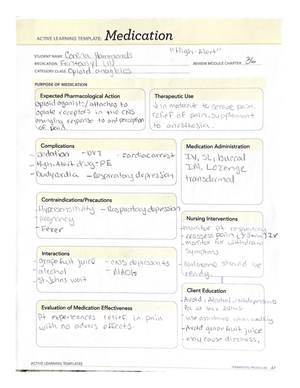 ACTIVE LEARNING TEMPLATE: Medication
"High-Alert"
STUDENT NAME Corena Hammonds
MEDICATION Fentanyl (II) REVIEW MODULE CHAPTER 36
CATEGORY CLASS Opioid analgesics
PURPOSE OF MEDICATION
Expected Pharmacological Action
opioid agonist/attaches to
opiate receptors in the CNS
altering response to and perception
of pain
Therapeutic Use
↓ in moderate to severe pain
relief of pain, supplement
to anesthesia.
Complications
-Sedation -DVT -cardiac arrest
-High-Alert drug -PE
-Bradycardia -respiratory depression
Medication Administration
IV, SL, buccal
IM, Lozenge
transdermal
Contraindications/Precautions
-Hypersensitivity -respiratory depression
-pregnancy
-Fever
Nursing Interventions
-monitor pt respiratory
-reassess pain IV
-monitor for withdrawal
symptoms
-Naloxone should be
ready.
Interactions
-grapefruit juice -CNS depressants
-alcohol -MAOIs
-St. Johns wort
Evaluation of Medication Effectiveness
Pt experiences relief in pain
with no advers effects.
Client Education
-Avoid, Alcohol, CNS depressants
for at least 24 hrs
-use assistance when walking
-Avoid grapefruit juice
-may cause dizziness,
ACTIVE LEARNING TEMPLATES
THERAPEUTIC PROCEDURE A7